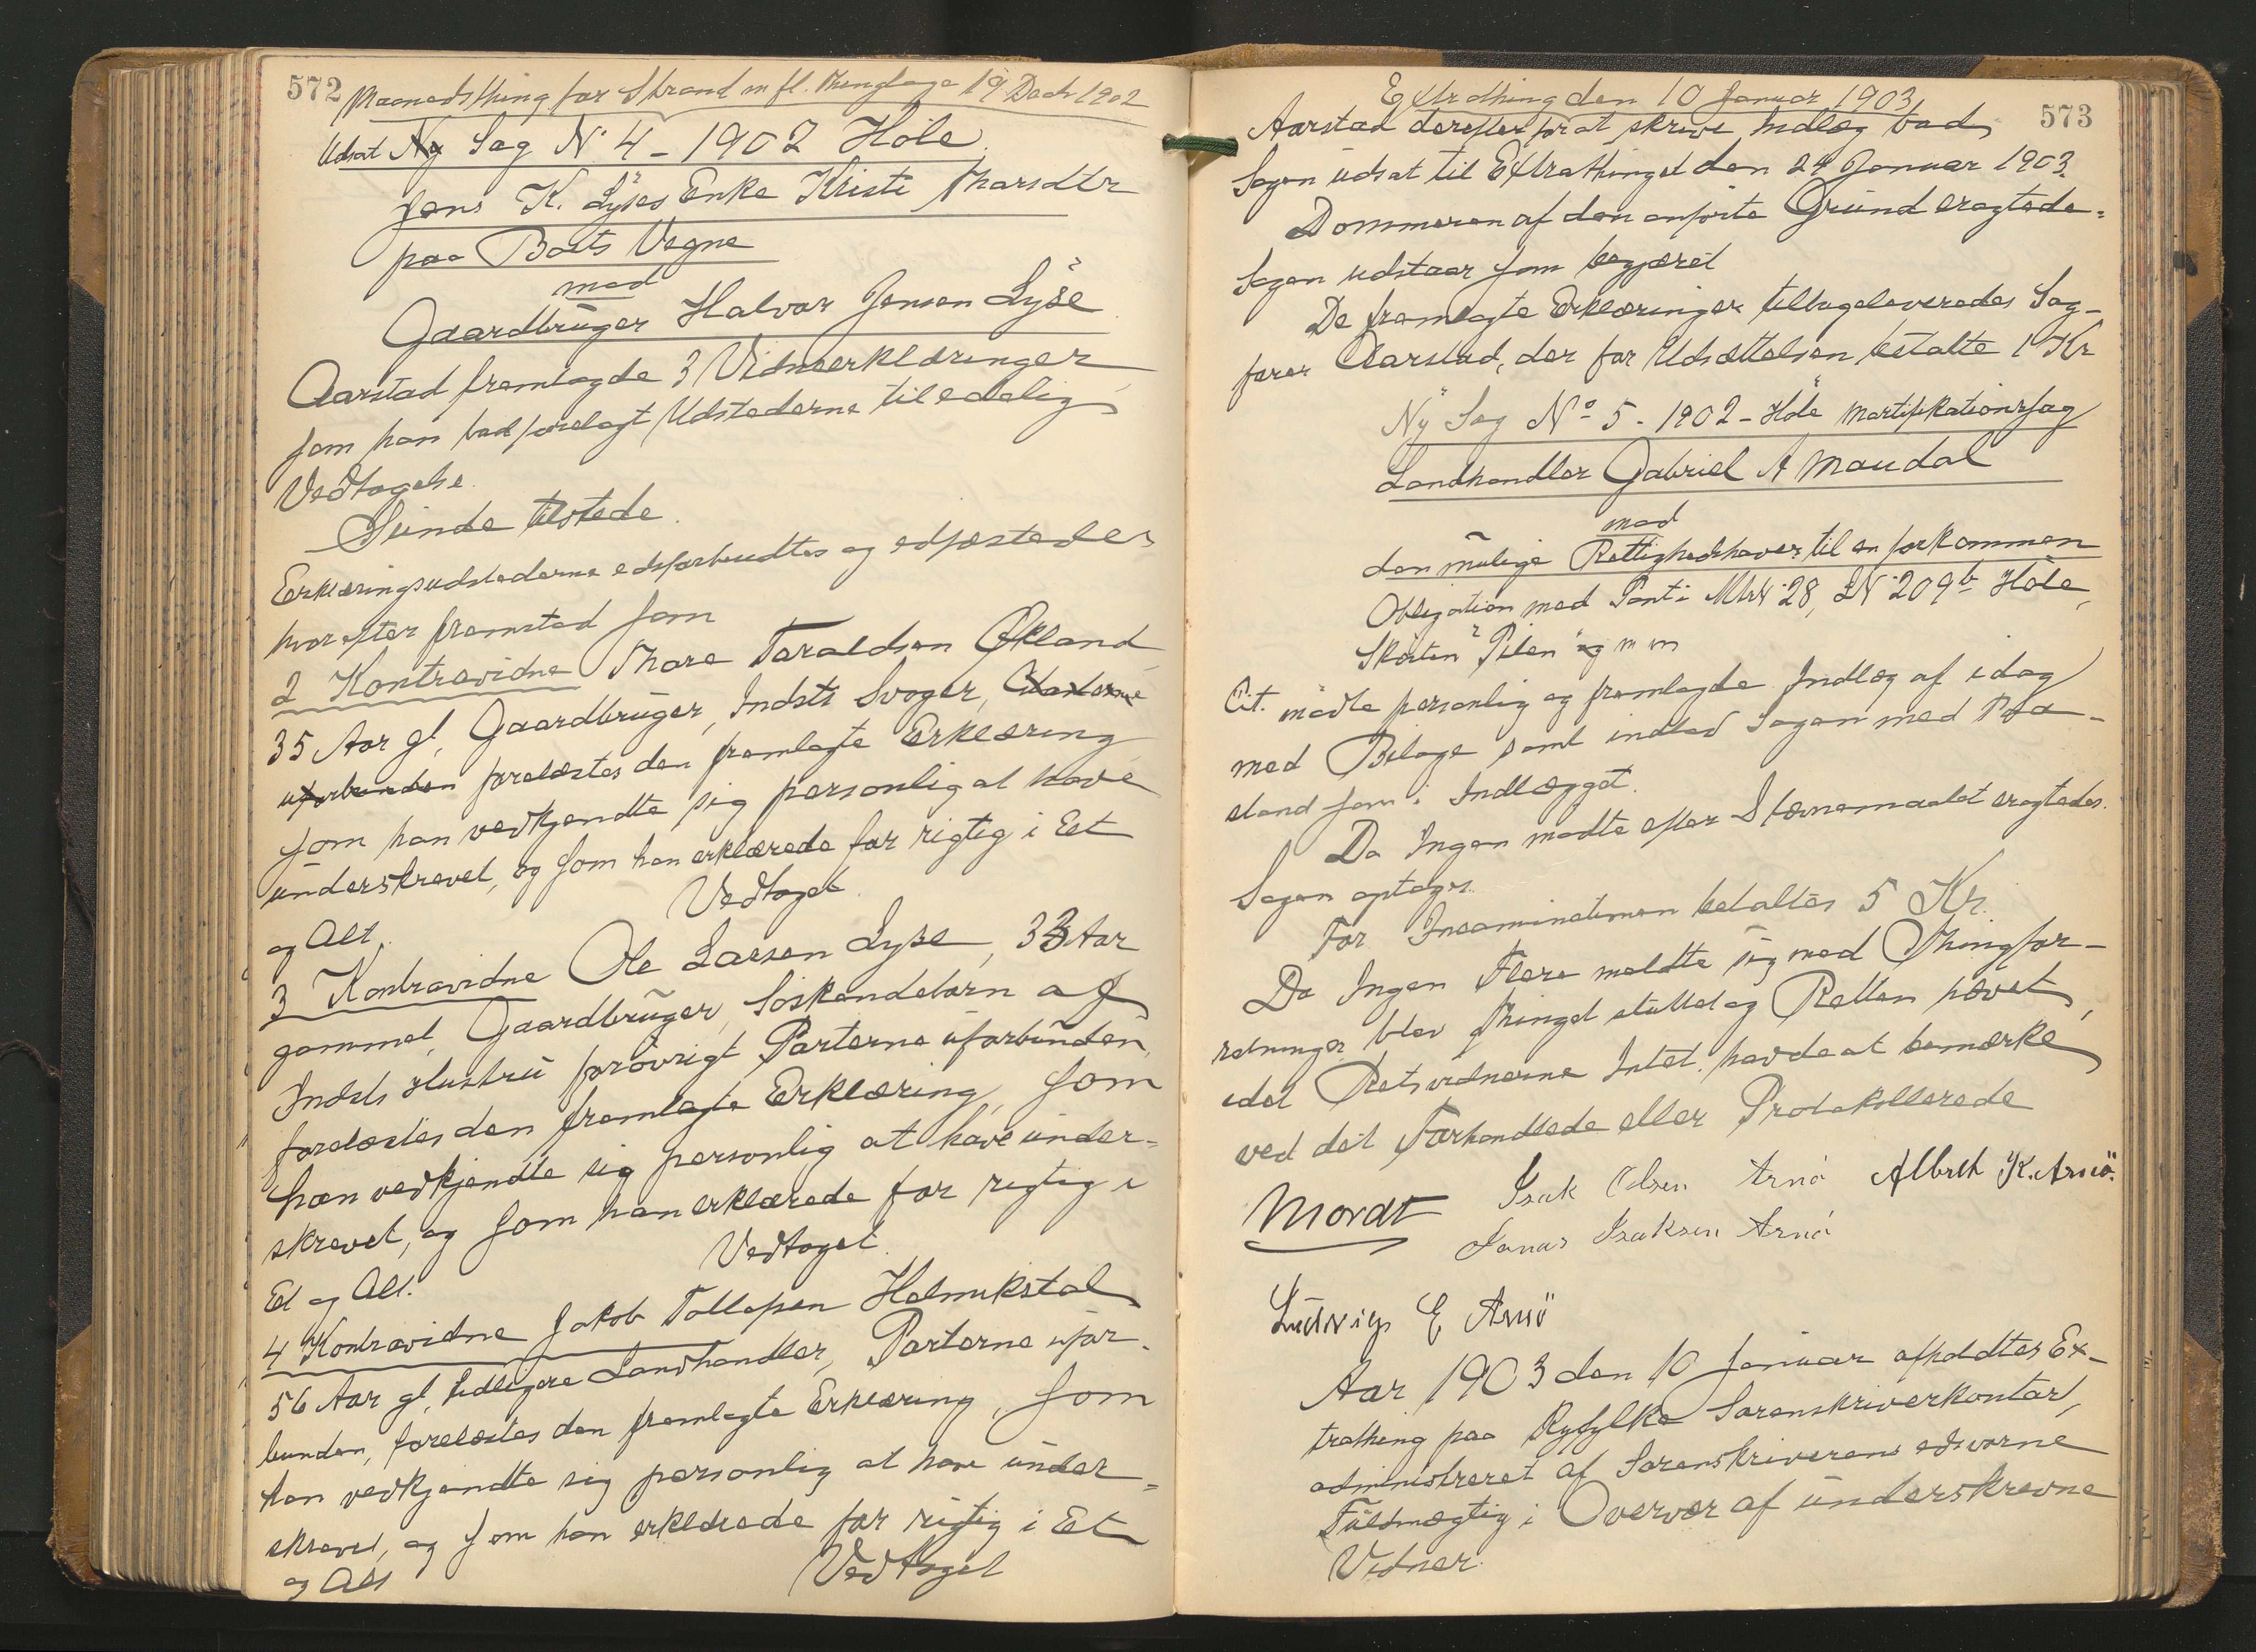 572 Maanedsthing for Strand m fl. thinglage 19 Decbr 1902
Udsat Ny Sag N: 4 - 1902 Höle.
Jens K. Lyses Enke Kristi Tharsdtr
paa Boets Vegne
mod
Gaardbruger Halvor Jensen Lyse
Aarstad fremlagde 3 Vidneerklæringer
som han bad forelagt Udstederne til edelig
Vedtagelse.
Sunde tilstede.
Erklæringsudstederne edsforbudtes og edfæstedes
hvorefter fremstod som
2 Kontravidne Thore Taraldsen Økland
35 Aar gl, Gaardbruger, Indsts Svoger, Citanterne
uforbunden forelæstes den fremlagte Erklæring
som han vedkjendte sig personlig at have
underskrevet, og som han erklærede for rigtig i Et
og Alt. Vedtaget.
3 Kontravidne Ole Larsen Lyse, 33 Aar
gammel, Gaardbruger, Söskendebarn af
Indsts Hustru forövrigt Parterne uforbunden,
forelæstes den fremlagte Erklæring, som
han vedkjendte sig personlig at have under=
skrevet, og som han erklærede for rigtig i
Et og Alt. Vedtaget.
4 Kontravidne Jakob Tollefsen Helmikstøl
56 Aar gl, tidligere Landhandler, Parterne ufor-
bunden, forelæstes den fremlagte Erklæring, som
han vedkjendte sig personlig at have under=
skrevet, og som han erklærede for rigtig i Et
og Alt Vedtaget
Extrathing den 10 Januar 1903. 573
Aarstad derefter for at skrive Indlæg bad
Sagen udsat til Extrathinget den 24 Januar 1903.
Dommeren af den anförte Grund eragtede:
Sagen udstaar som begjæret
De fremlagte Erklæringer tilbageleveredes Sag-
förer Aarstad, der for Udsættelsen betalte 1 Kr
Ny Sag No 5 - 1902 - Höle Mortifikationssag
Landhandler Gabriel A Maudal
mod
den mulige Rettighedshaver til en forkommen
Obligation med Pant i Mtr N: 28, LN: 209b Höle,
Skøiten "Pilen" og m m
Cit. mödte personlig og fremlagde Indlæg af idag
med Bilage samt indlod Sagen med Paa-
stand som i Indlægget.
Da Ingen mödte efter Stævnemaalet eragtedes.
Sagen optages.
For Incaminationen betaltes 5 Kr.
Da Ingen Flere meldte sig med Thingfor-
retninger blev Thinget sluttet og Retten hævet,
idet Retsvidnerne Intet havde at bemærke
ved det Forhandlede eller Protokollerede
Mordt Isak Olsen Arnö Albret K. Arnö.
Jonas Isaksen Arnö
Ludvig E Arnö
Aar 1903 den 10 Januar afholdtes Ex-
trathing paa Ryfylke Sorenskriverkontor,
administreret af Sorenskriverens edsvorne
Fuldmægtig i Overvær af underskrevne
Vidner.